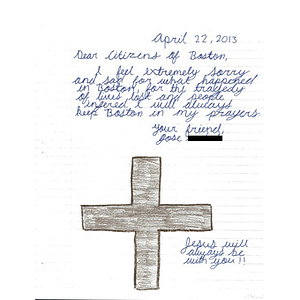 April 22, 2013
Dear Citizens of Boston,
I feel extremely sorry
and sad for what happened
in Boston, for the tragedy
of lives lost and people
injered. I will always
keep Boston in my prayers.
Your friend,
Jose
Jesus will
always be
with you!!